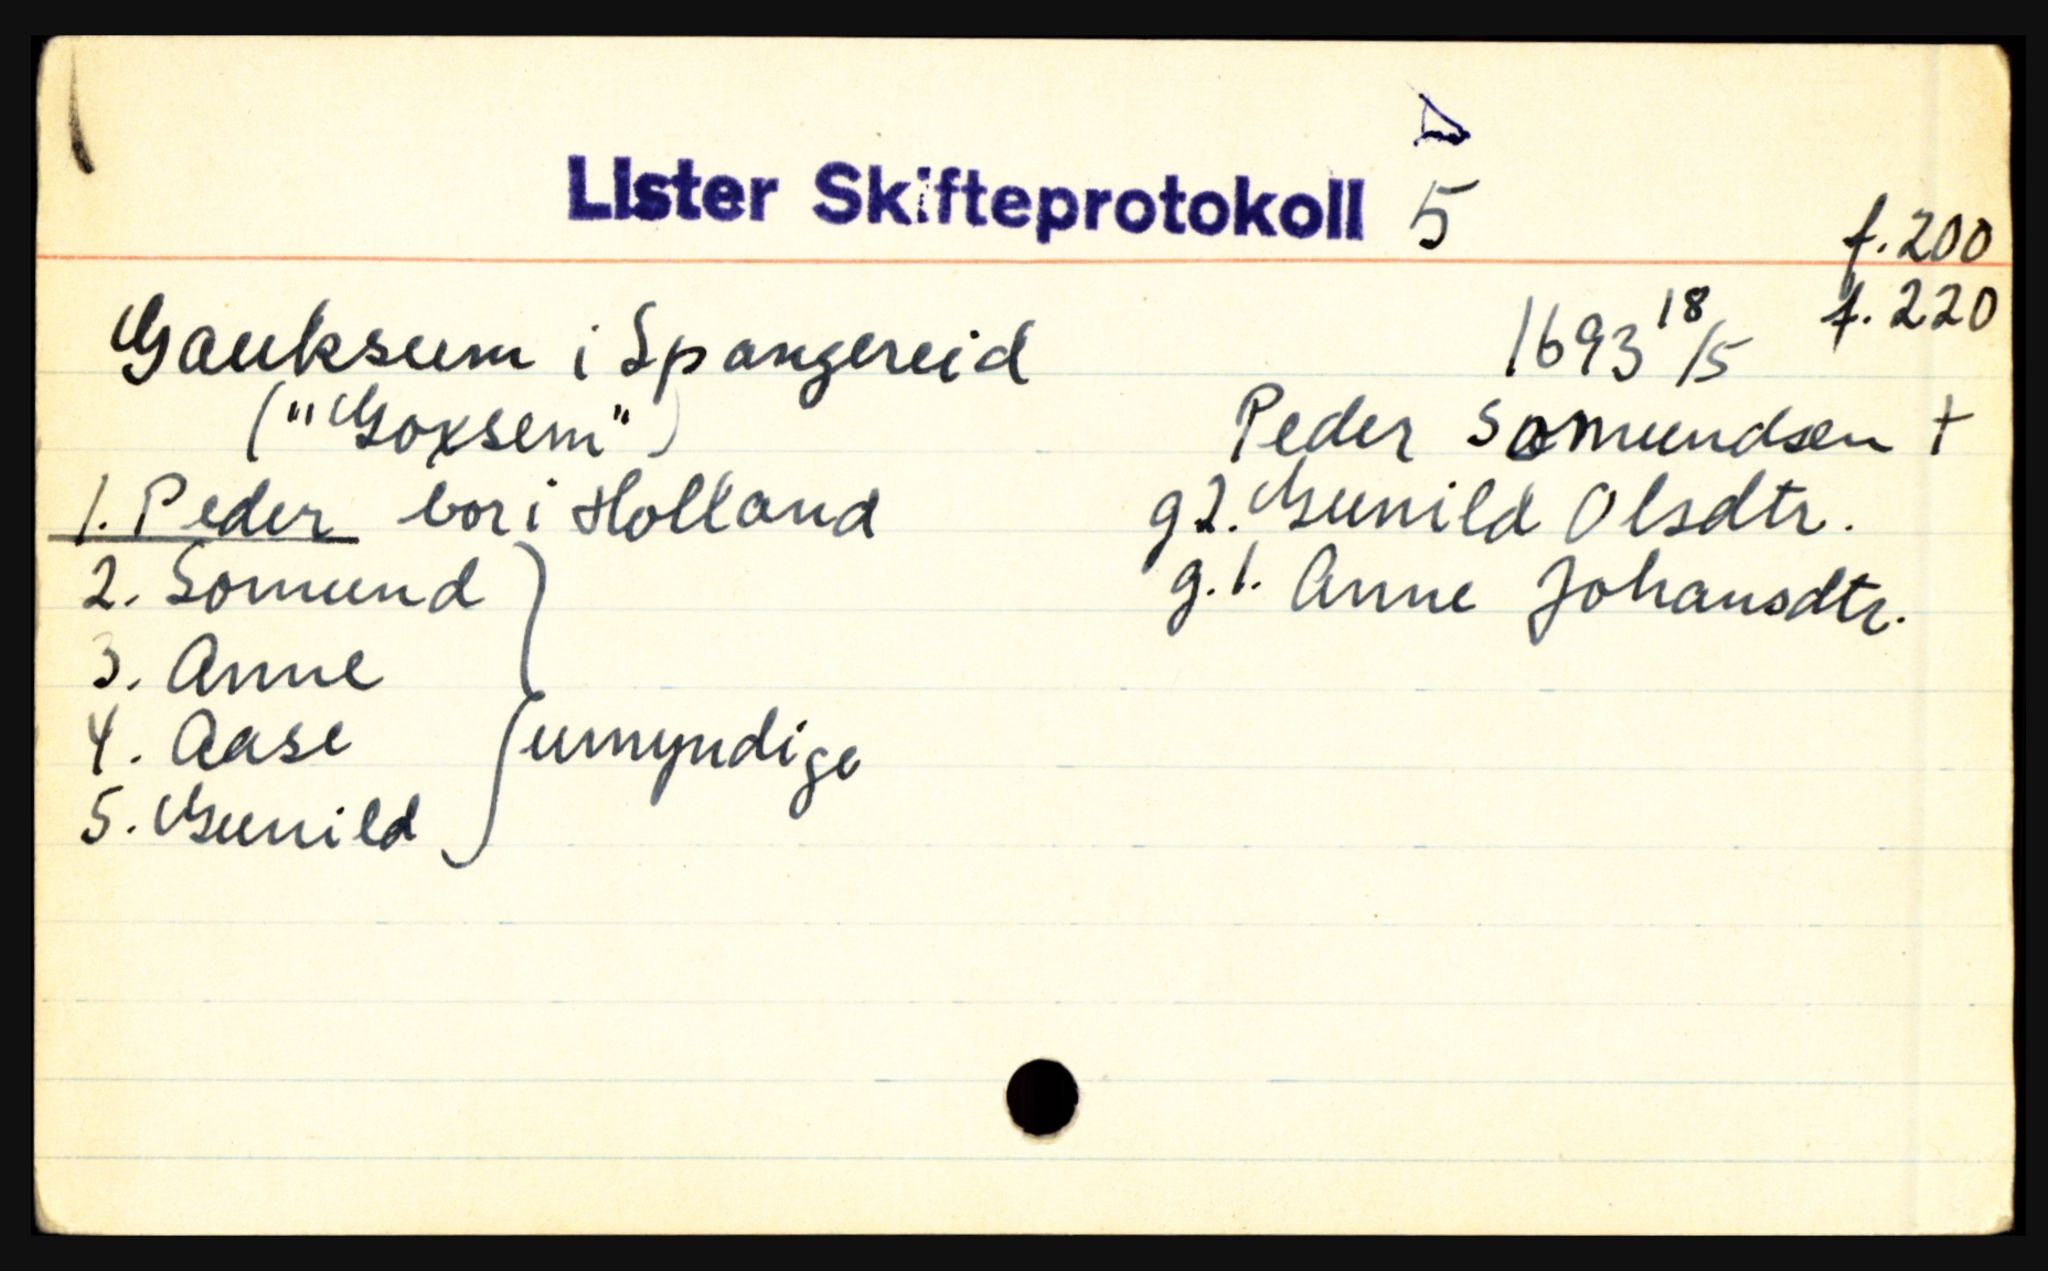 Lister Skifteprotokoll 5
f. 200
f. 220
Gauksum i Spangereid
("Goxsem")
1. Peder bor i Holland
2. Somund
3. Anne
4. Aase
5. Gunild
umyndige
1693 18/5
Peder Somundsen +
g 2. Gunild Olsdtr.
g. 1. Anne Johansdtr.